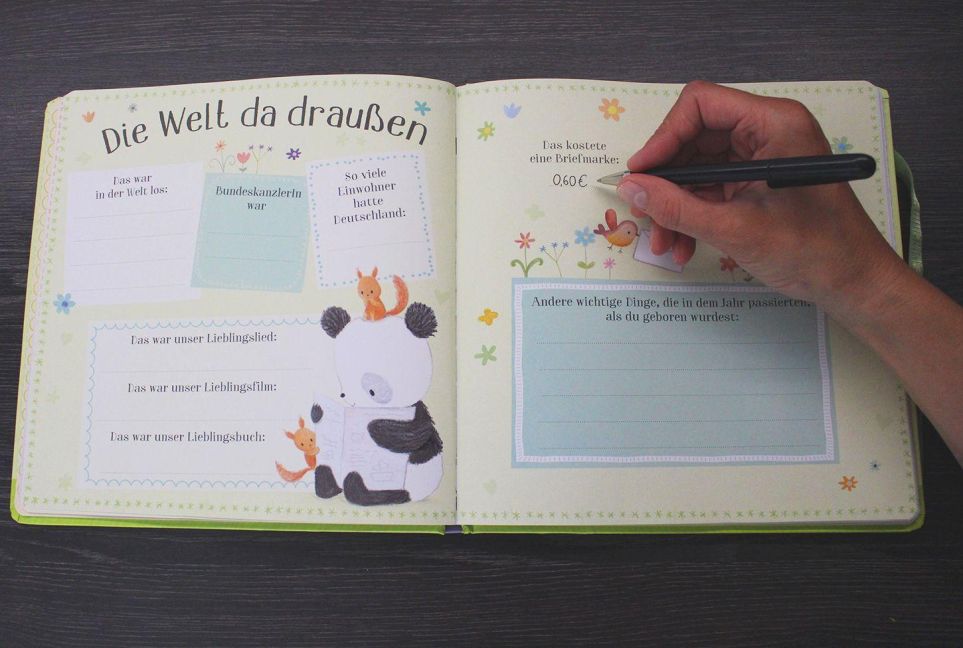 Die Welt da draußen
Das war
in der Welt los:
Bundeskanzlerin
war
So viele
Einwohner
hatte
Deutschland:
Das war unser Lieblingslied:
Das war unser Lieblingsfilm:
Das war unser Lieblingsbuch:
Das kostete
eine Briefmarke:
0,60€
Andere wichtige Dinge, die in dem Jahr passierten,
als du geboren wurdest: